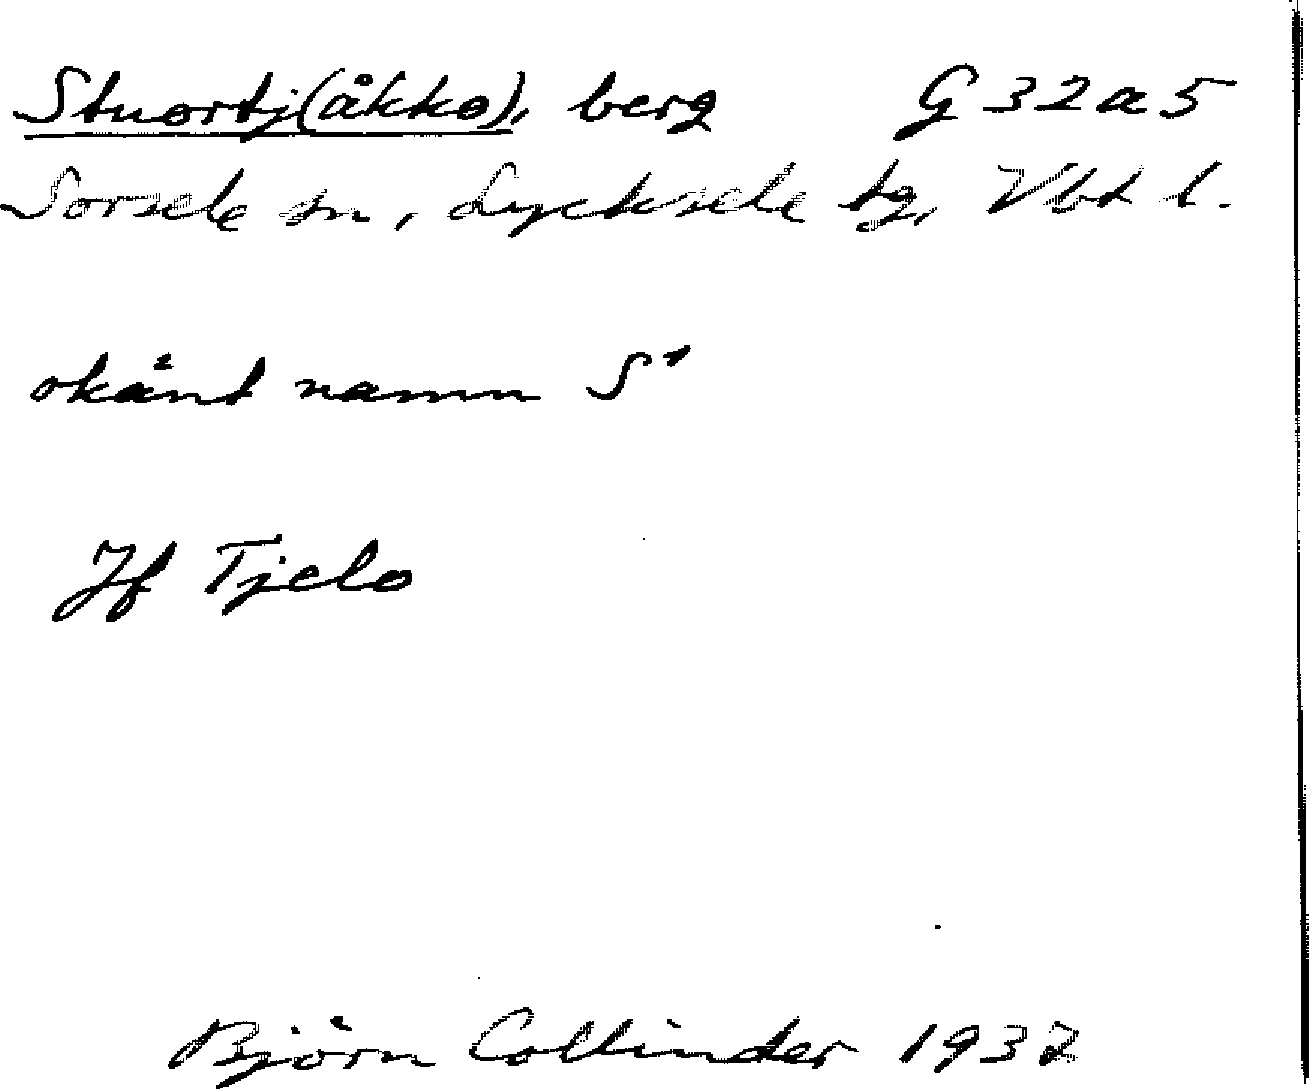 Stuortj(åkko), berg G 32 a 5
Sorsele sn, Lycksele tg, Vbt l.
okänt namn S¹
Jf Tjelo
Björn Collinder 1932